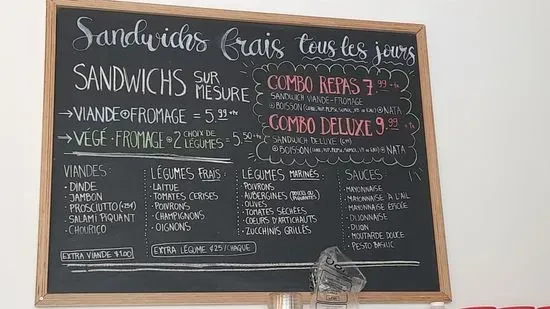 Sandwichs frais tous les jours
SANDWICHS SUR MESURE
→ VIANDE + FROMAGE = 5.99 +tx
→ VÉGÉ-FROMAGE + 2 CHOIX DE LÉGUMES = 5.50 +tx
COMBO REPAS 7.99 +tx
SANDWICH VIANDE-FROMAGE
+ BOISSON + NATA
COMBO DELUXE 9.99 +tx
SANDWICH DELUXE
+ BOISSON + NATA
VIANDES:
- DINDE
- JAMBON
- PROSCIUTTO (+25¢)
- SALAMI PIQUANT
- CHOURICO
EXTRA VIANDE $1.00
LÉGUMES FRAIS:
- LAITUE
- TOMATES CERISES
- POIVRONS
- CHAMPIGNONS
- OIGNONS
EXTRA LÉGUME ¢25/CHAQUE
LÉGUMES MARINÉS:
- POIVRONS
- AUBERGINES (DOUCES OU PIQUANTES)
- OLIVES
- TOMATES SÉCHÉES
- COEURS D'ARTICHAUTS
- ZUCCHINIS GRILLÉS
SAUCES:
- MAYONNAISE
- MAYONNAISE À L'AIL
- MAYONNAISE ÉPICÉE
- DIJONNAISE
- DIJON
- MOUTARDE DOUCE
- PESTO BASILIC